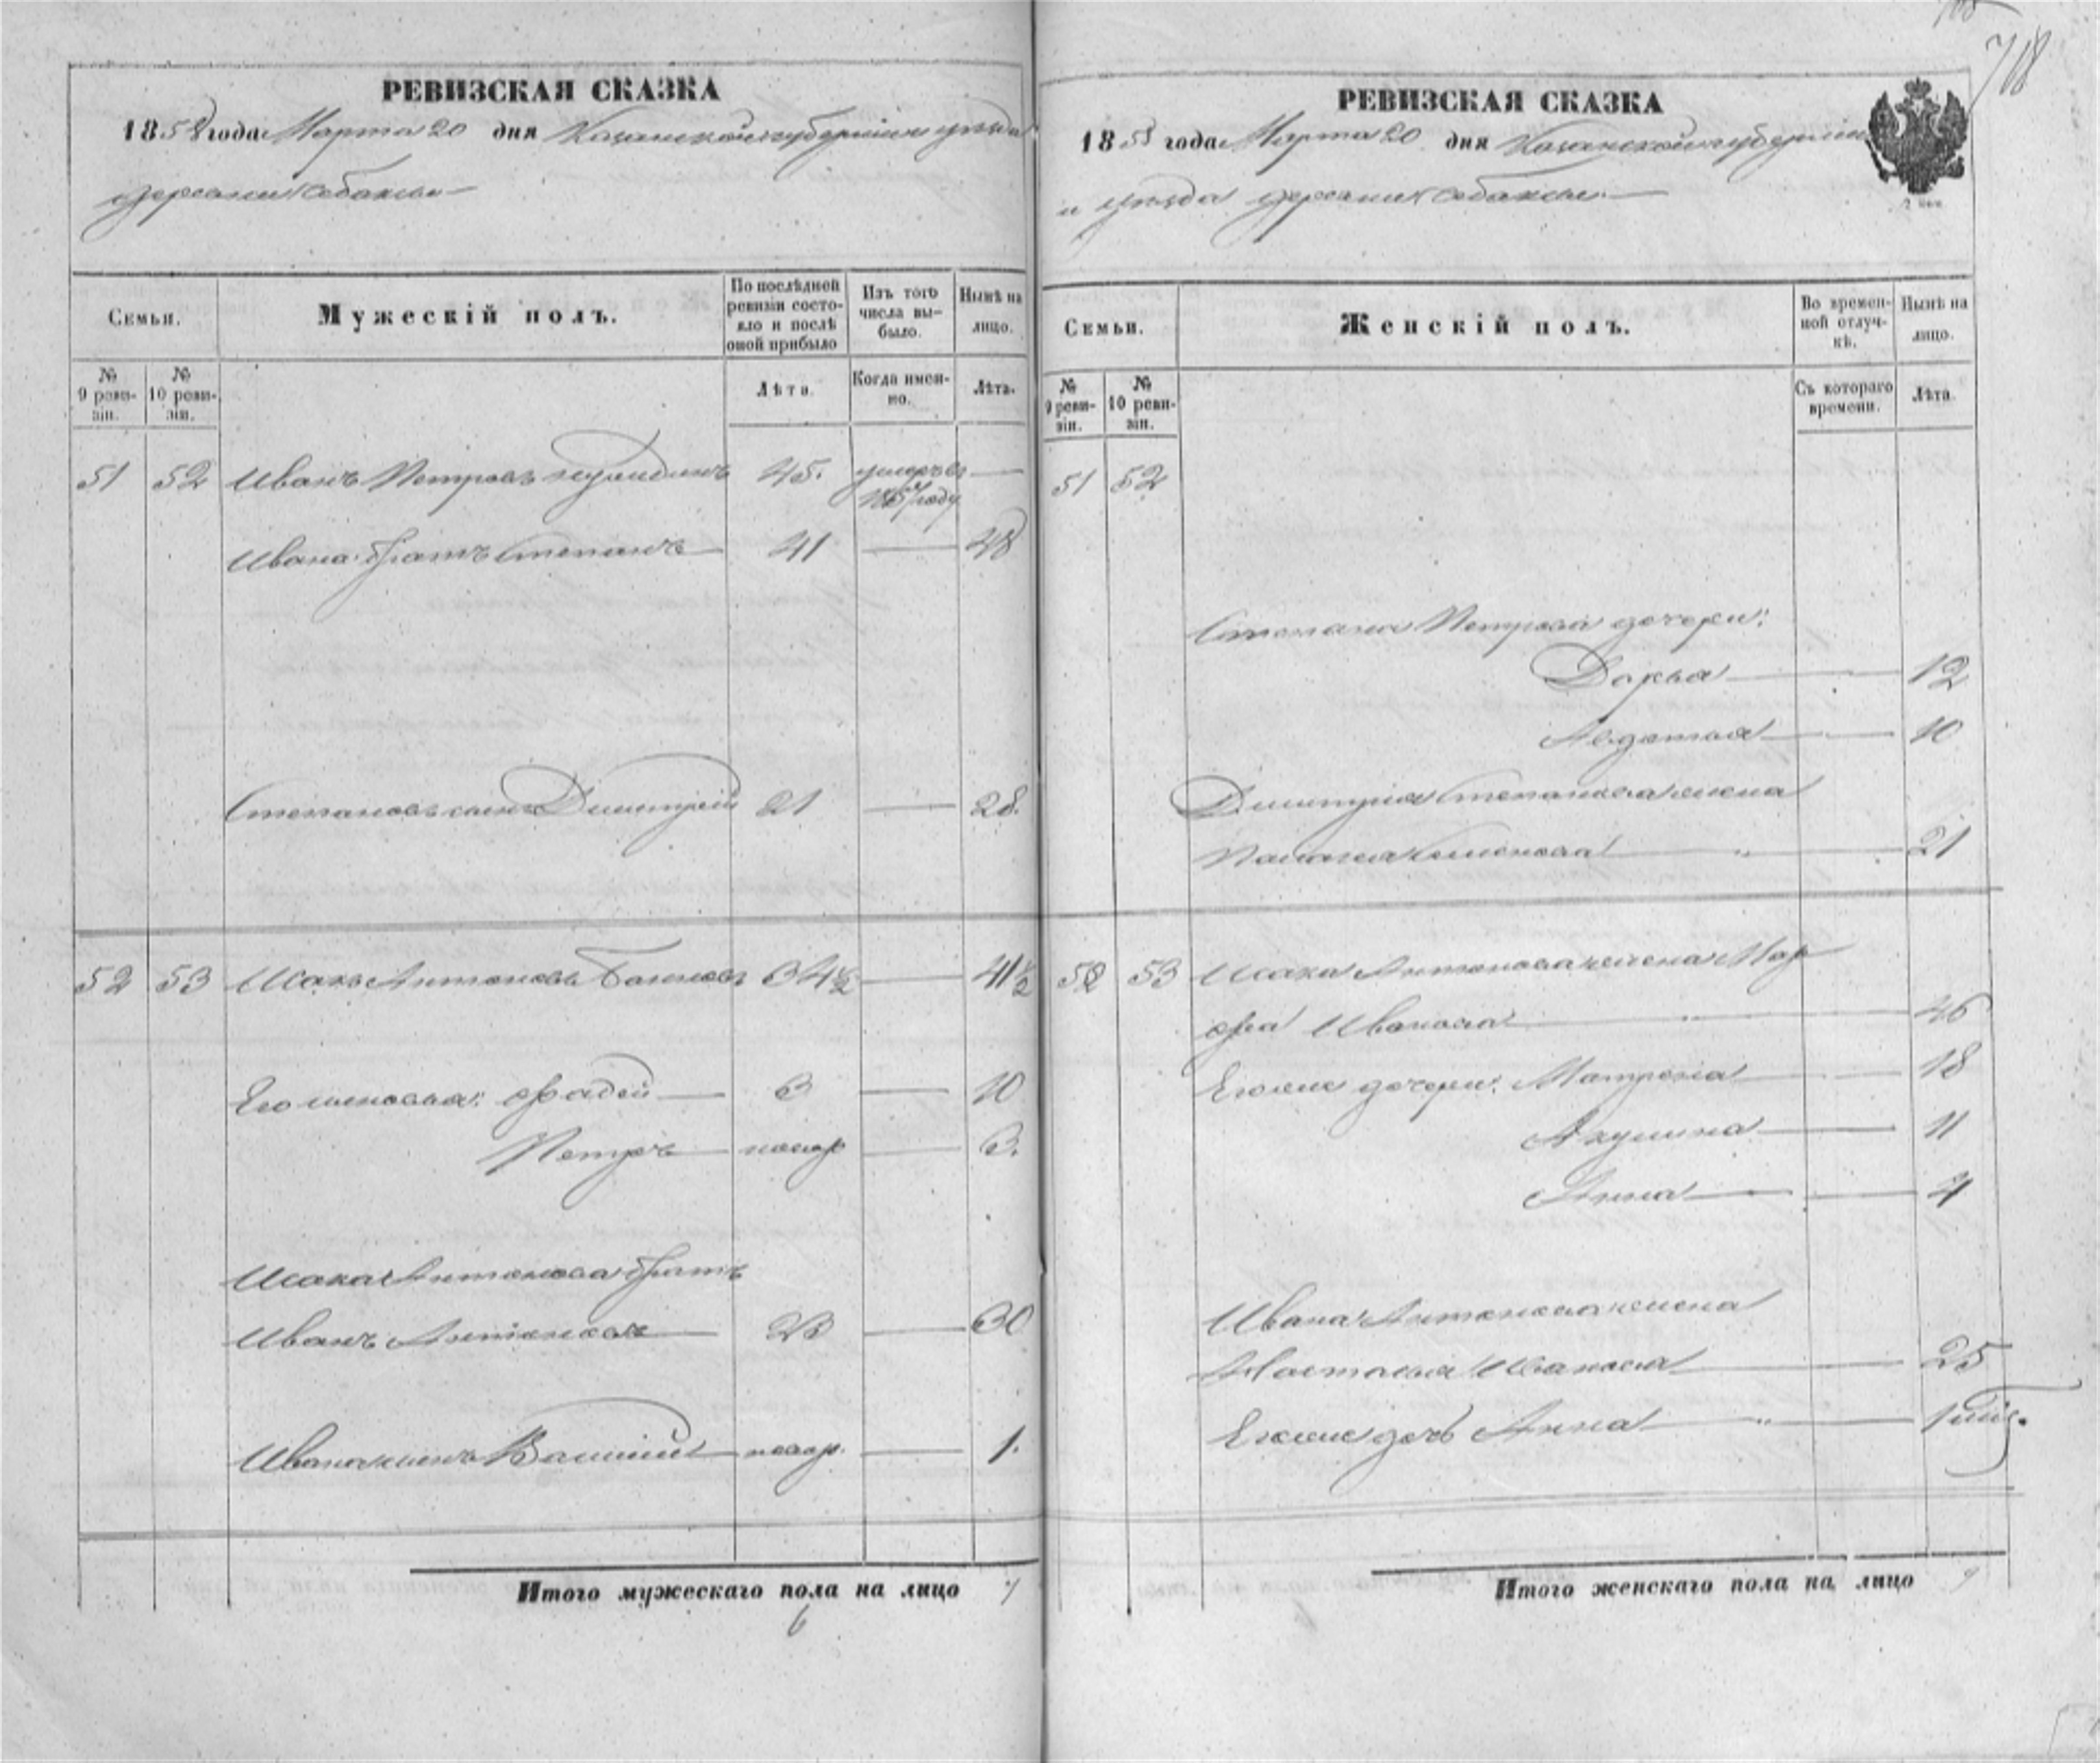 718
РЕВИЗСКАЯ СКАЗКА
1858 года Марта 20 дня Казанской губерніи и уѣзда
деревни
Семьи.
Мужескій полъ.
По послѣдней ревизіи состояло и послѣ оной прибыло
Изъ того числа выбыло.
Нынѣ на лицо.
№ 9 ревизіи.
№ 10 ревизіи.
Лѣта.
Когда именно.
Лѣта.
51 52 Иванъ Петровъ 45. умеръ въ
1857 году
Ивана братъ Степанъ 41 48
Степановъ сынъ Димитрій 21 28.
52 53 Исакъ Антоновъ 34½ 41½
Его сыновья: Фадей 3 10
Петръ новор 3.
Исака Антонова братъ
Иванъ Антоновъ 23 30
Ивана сынъ Василій новор. 1.
Итого мужескаго пола на лицо 7
6
РЕВИЗСКАЯ СКАЗКА
1858 года Марта 20 дня Казанской губерніи
и уѣзда деревни
Семьи.
Женскій полъ.
Во временной отлучкѣ.
Нынѣ на лицо.
№ 9 ревизіи.
№ 10 ревизіи.
Съ котораго времени.
Лѣта.
51 52
Степана Петрова дочери:
Дарья 12
Авдотья 10
Димитрія Степанова жена
Семенова 21
52 53 Исака Антонова жена Мар
фа Иванова 46
Его же дочери: Матрена 18
Акулина 11
Анна 4
Ивана Антонова жена
Настасья Иванова 25
Его же дочь Анна
Итого женскаго пола на лицо 9